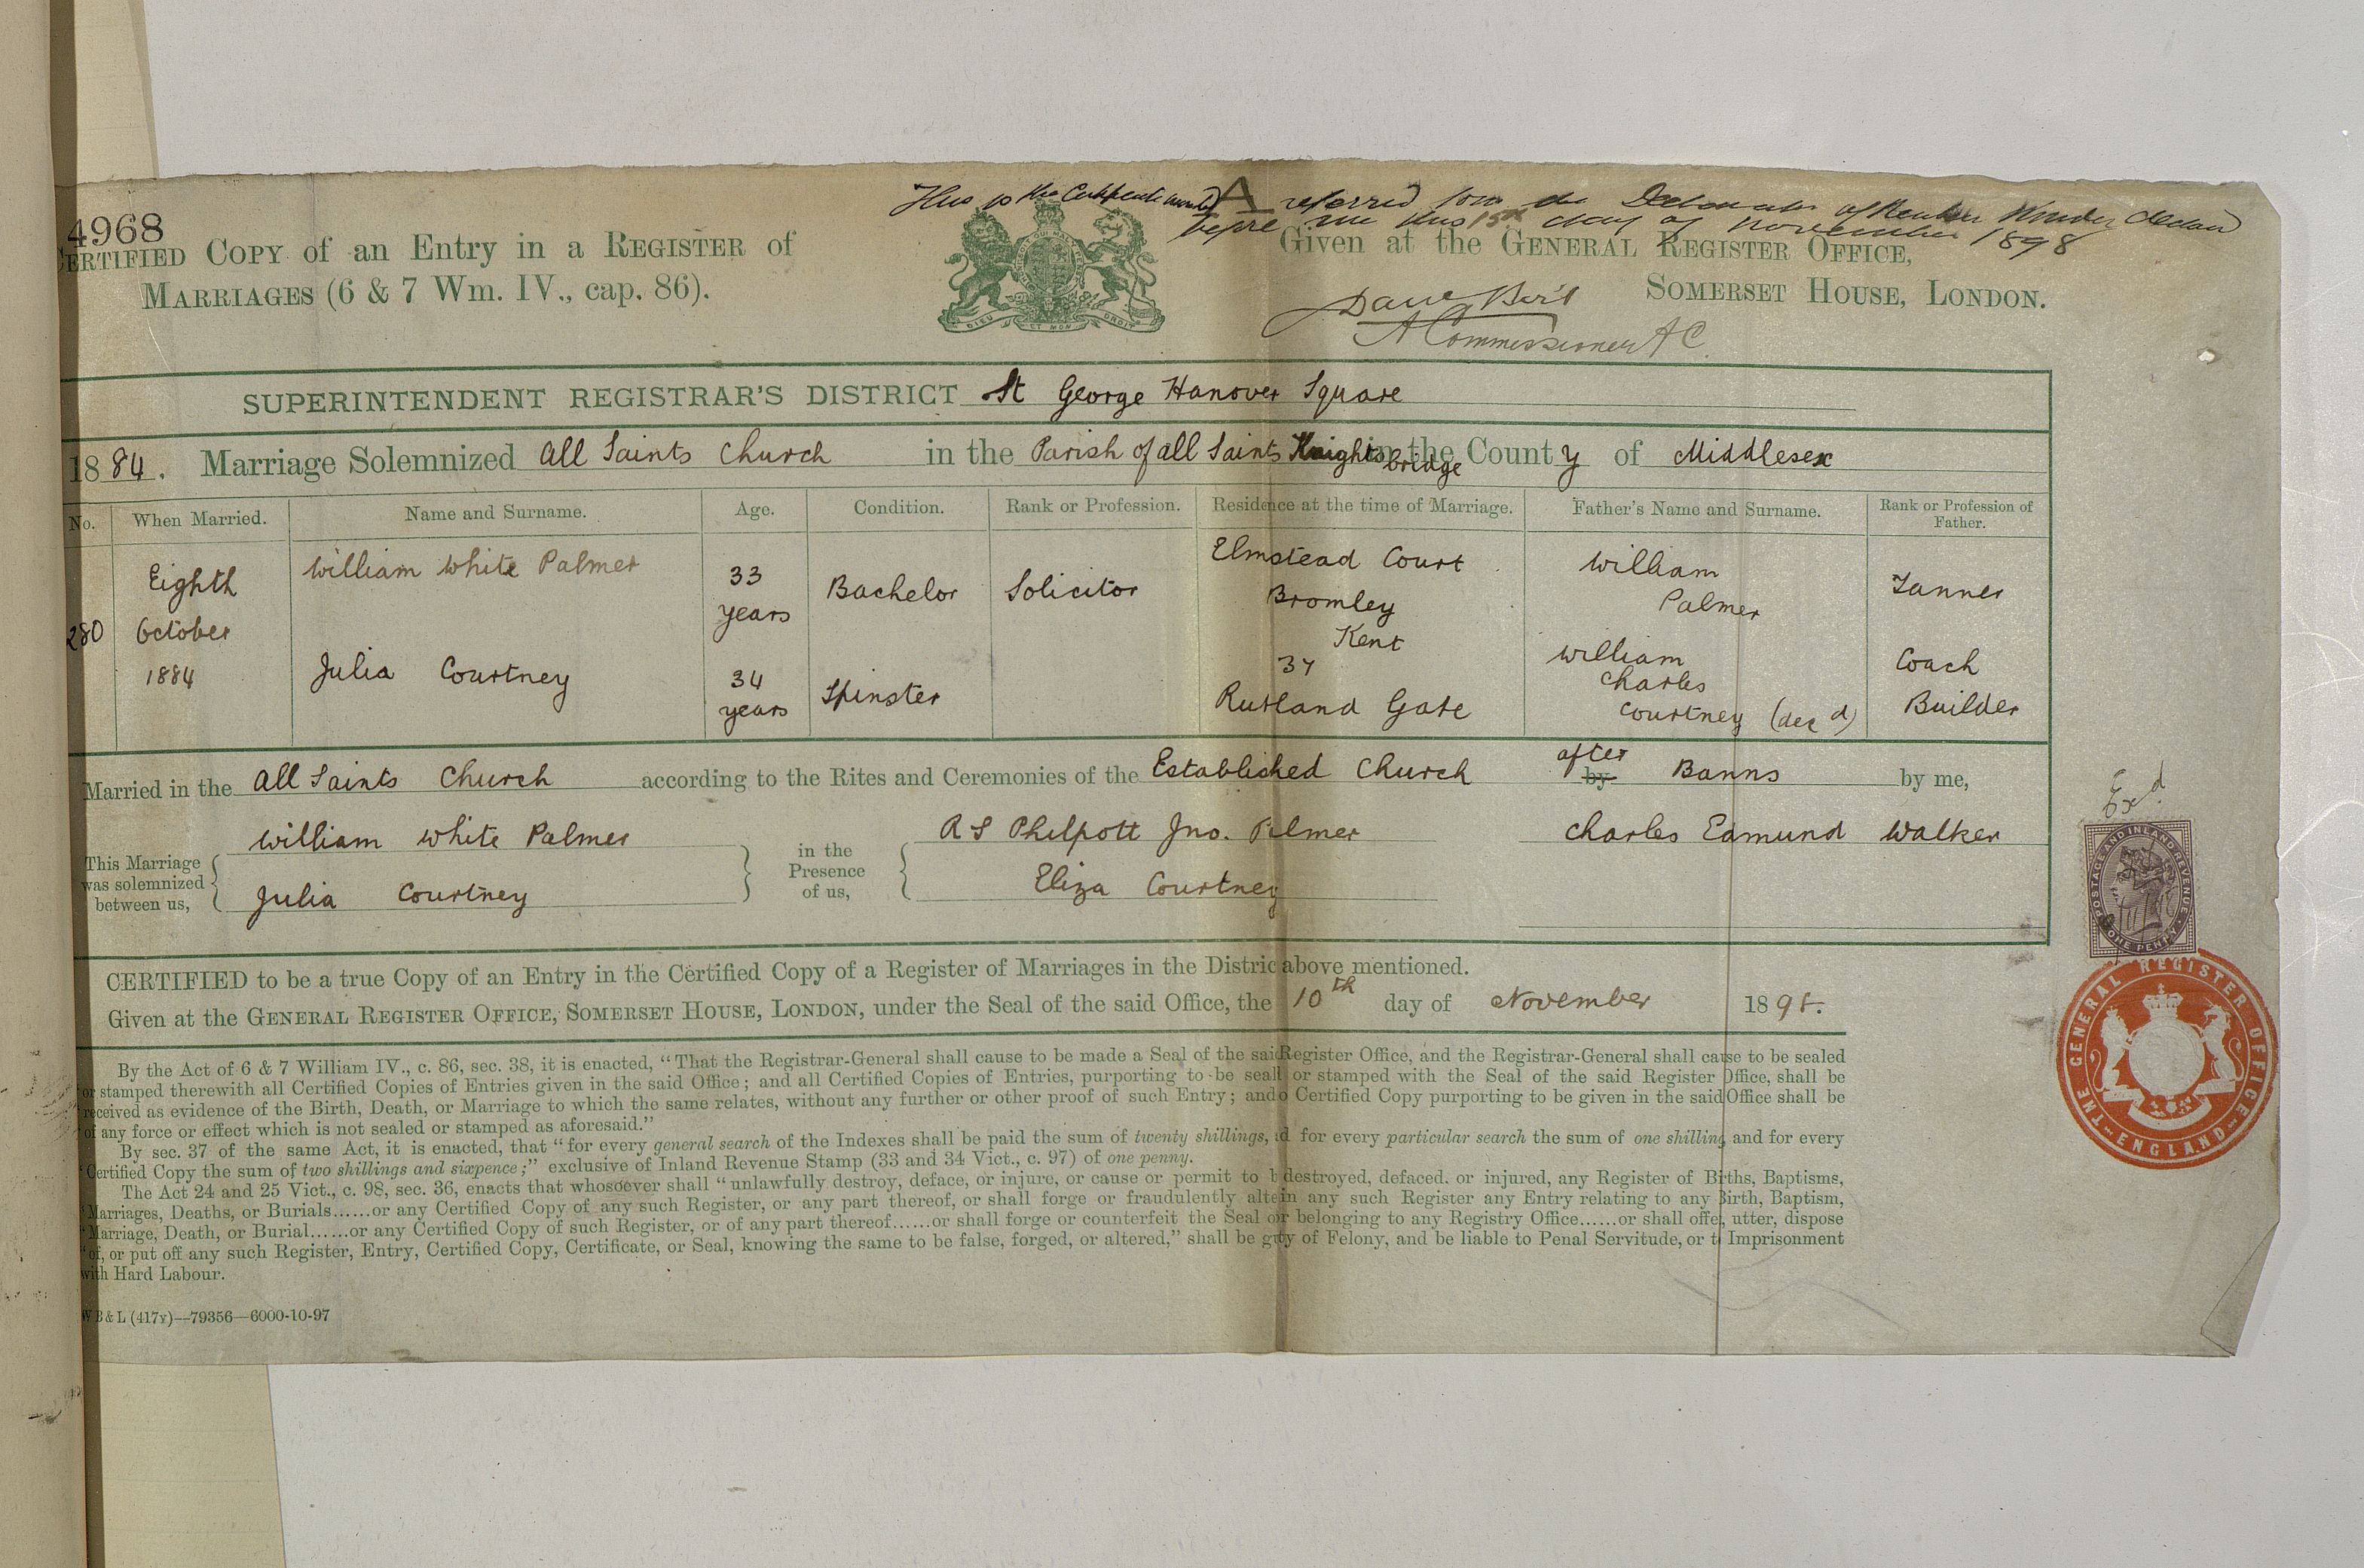 This is the Certificate marked A referred to in the Declaration of declared
before me this 15th day of November 1898
4968
CERTIFIED COPY of an Entry in a REGISTER of
MARRIAGES (6 & 7 Wm. IV., cap. 86).
DIEU ET MON DROIT
Given at the GENERAL REGISTER OFFICE,
SOMERSET HOUSE, LONDON.
A Commissioner &c
SUPERINTENDENT REGISTRAR'S DISTRICT St George Hanover Square
1884. Marriage Solemnized All Saints Church in the Parish of all Saints Knightsbridge in the County of Middlesex
No. When Married. Name and Surname. Age. Condition. Rank or Profession. Residence at the time of Marriage. Father's Name and Surname. Rank or Profession of Father.
280 Eighth October 1884
William White Palmer 33 years Bachelor Solicitor Elmstead Court Bromley Kent William Palmer Tanner
Julia Courtney 34 years Spinster 37 Rutland Gate William Charles Courtney (decd) Coach Builder
Married in the All Saints Church according to the Rites and Ceremonies of the Established Church after by Banns by me,
This Marriage was solemnized between us,
William White Palmer
Julia Courtney
in the Presence of us,
R S Philpott Jno. Palmer
Eliza Courtney
Charles Edmund Walker
Exd
POSTAGE AND INLAND REVENUE
ONE PENNY
CERTIFIED to be a true Copy of an Entry in the Certified Copy of a Register of Marriages in the Distric above mentioned.
Given at the GENERAL REGISTER OFFICE, SOMERSET HOUSE, LONDON, under the Seal of the said Office, the 10th day of November 1898.
THE GENERAL REGISTER OFFICE ENGLAND
By the Act of 6 & 7 William IV., c. 86, sec. 38, it is enacted, "That the Registrar-General shall cause to be made a Seal of the said Register Office, and the Registrar-General shall cause to be sealed
or stamped therewith all Certified Copies of Entries given in the said Office; and all Certified Copies of Entries, purporting to be seal or stamped with the Seal of the said Register Office, shall be
received as evidence of the Birth, Death, or Marriage to which the same relates, without any further or other proof of such Entry; and o Certified Copy purporting to be given in the said Office shall be
of any force or effect which is not sealed or stamped as aforesaid."
By sec. 37 of the same Act, it is enacted, that "for every general search of the Indexes shall be paid the sum of twenty shillings, d for every particular search the sum of one shilling, and for every
"Certified Copy the sum of two shillings and sixpence;" exclusive of Inland Revenue Stamp (33 and 34 Vict., c. 97) of one penny.
The Act 24 and 25 Vict., c. 98, sec. 36, enacts that whosoever shall "unlawfully destroy, deface, or injure, or cause or permit to b destroyed, defaced. or injured, any Register of Births, Baptisms,
"Marriages, Deaths, or Burials......or any Certified Copy of any such Register, or any part thereof, or shall forge or fraudulently alte in any such Register any Entry relating to any Birth, Baptism,
"Marriage, Death, or Burial......or any Certified Copy of such Register, or of any part thereof......or shall forge or counterfeit the Seal o r belonging to any Registry Office......or shall offer, utter, dispose
"of, or put off any such Register, Entry, Certified Copy, Certificate, or Seal, knowing the same to be false, forged, or altered," shall be g ty of Felony, and be liable to Penal Servitude, or t Imprisonment
with Hard Labour.
W B & L (417r)—79356—6000-10-97